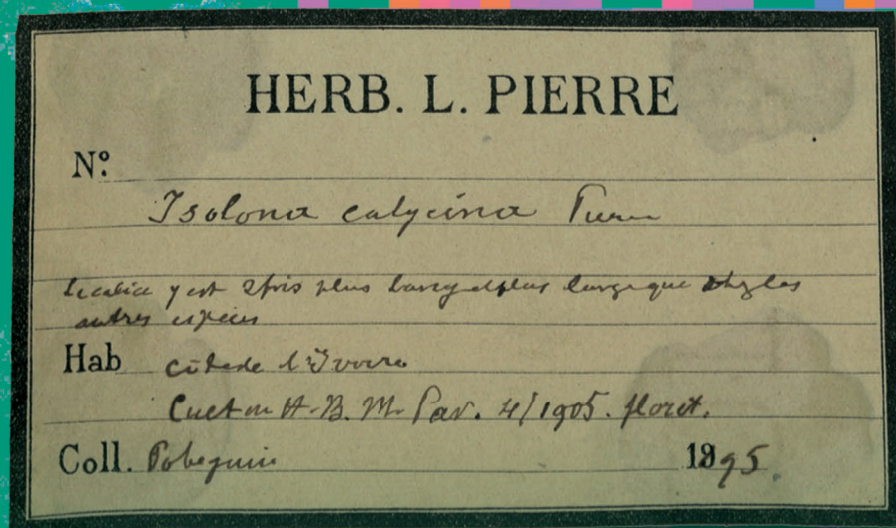 HERB. L. PIERRE
N°
Isolona calycina Pierre
le calice y est 2 fois plus long et plus large que chez les
autres espèces
Hab côte de l'Ivoire
Cult in H. B. M. Par. 4/1905. floret.
Coll. Pobeguin 1895